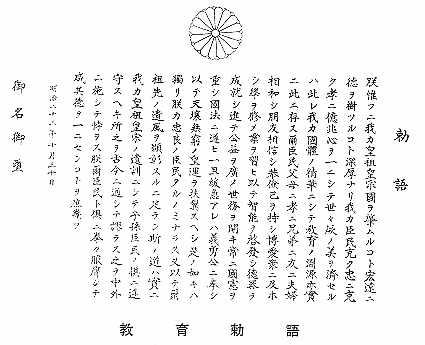 勅語
朕惟フニ我カ皇祖皇宗國ヲ肇ムルコト宏遠ニ
德ヲ樹ツルコト深厚ナリ我カ臣民克ク忠ニ克
ク孝ニ億兆心ヲ一ニシテ世々厥ノ美ヲ濟セル
ハ此レ我カ國體ノ精華ニシテ敎育ノ淵源亦實
ニ此ニ存ス爾臣民父母ニ孝ニ兄弟ニ友ニ夫婦
相和シ朋友相信シ恭儉己ヲ持シ博愛衆ニ及ホ
シ學ヲ修メ業ヲ習ヒ以テ智能ヲ啓發シ德器ヲ
成就シ進テ公益ヲ廣メ世務ヲ開キ常ニ國憲ヲ
重シ國法ニ遵ヒ一旦緩急アレハ義勇公ニ奉シ
以テ天壤無窮ノ皇運ヲ扶翼スヘシ是ノ如キハ
獨リ朕カ忠良ノ臣民タルノミナラス又以テ爾
祖先ノ遺風ヲ顯彰スルニ足ラン斯ノ道ハ實ニ
我カ皇祖皇宗ノ遺訓ニシテ子孫臣民ノ俱ニ遵
守スヘキ所之ヲ古今ニ通シテ謬ラス之ヲ中外
ニ施シテ悖ラス朕爾臣民ト俱ニ拳々服膺シテ
咸其德ヲ一ニセンコトヲ庶幾フ
明治二十三年十月三十日
御名御璽
教育勅語